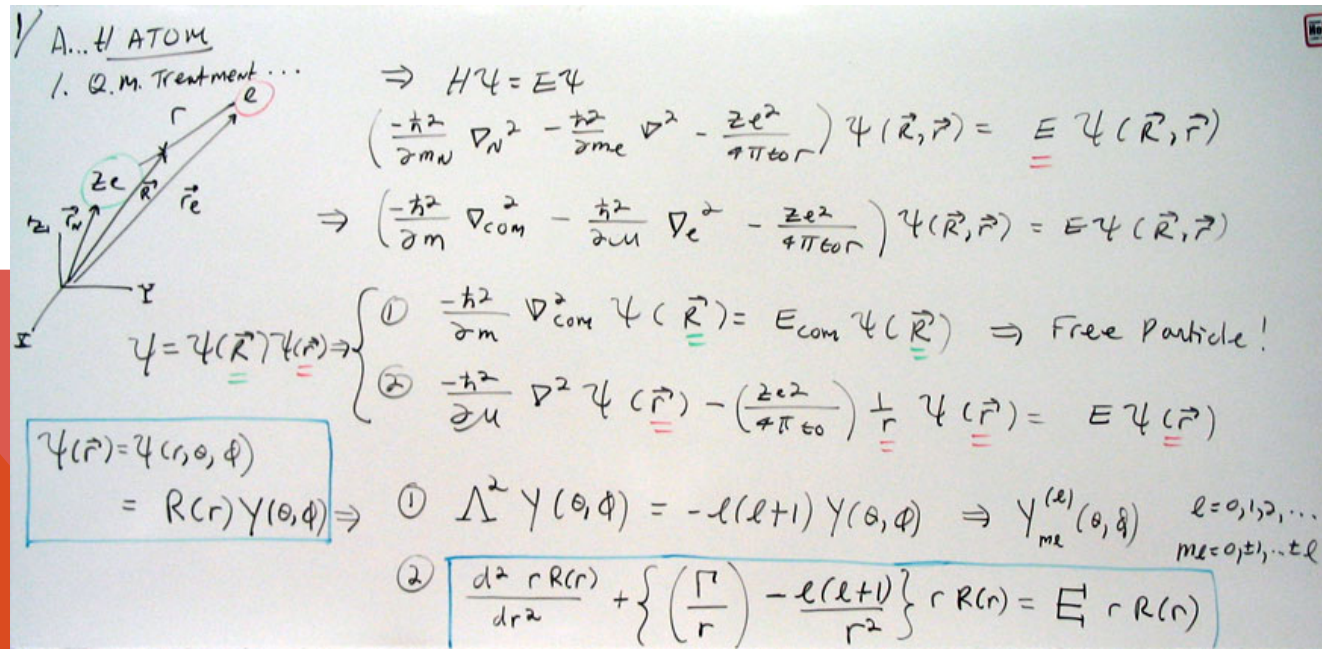 1/ A... H ATOM
1. Q.M. Treatment ...
⇒ Hψ = Eψ
r
e
Ze
R⃗
r⃗_N
r⃗_e
Z
Y
X
(-ħ²/2m_N ∇_N² - ħ²/2m_e ∇² - Ze²/4πε₀r) ψ(R⃗, r⃗) = E ψ(R⃗, r⃗)
⇒ (-ħ²/2m ∇_com² - ħ²/2μ ∇_e² - Ze²/4πε₀r) ψ(R⃗, r⃗) = E ψ(R⃗, r⃗)
ψ = ψ(R⃗)ψ(r⃗) ⇒ { ① -ħ²/2m ∇²_com ψ(R⃗) = E_com ψ(R⃗) ⇒ Free Particle!
② -ħ²/2μ ∇² ψ(r⃗) - (Ze²/4πε₀) 1/r ψ(r⃗) = E ψ(r⃗)
ψ(r⃗) = ψ(r,θ,φ)
= R(r) Y(θ,φ) ⇒ ① Λ² Y(θ,φ) = -l(l+1) Y(θ,φ) ⇒ Y_ml^(l) (θ,φ) l=0,1,2,...
ml=0,±1,..±l
② d² r R(r)/dr² + {(Γ/r) - l(l+1)/r²} r R(r) = E' r R(r)